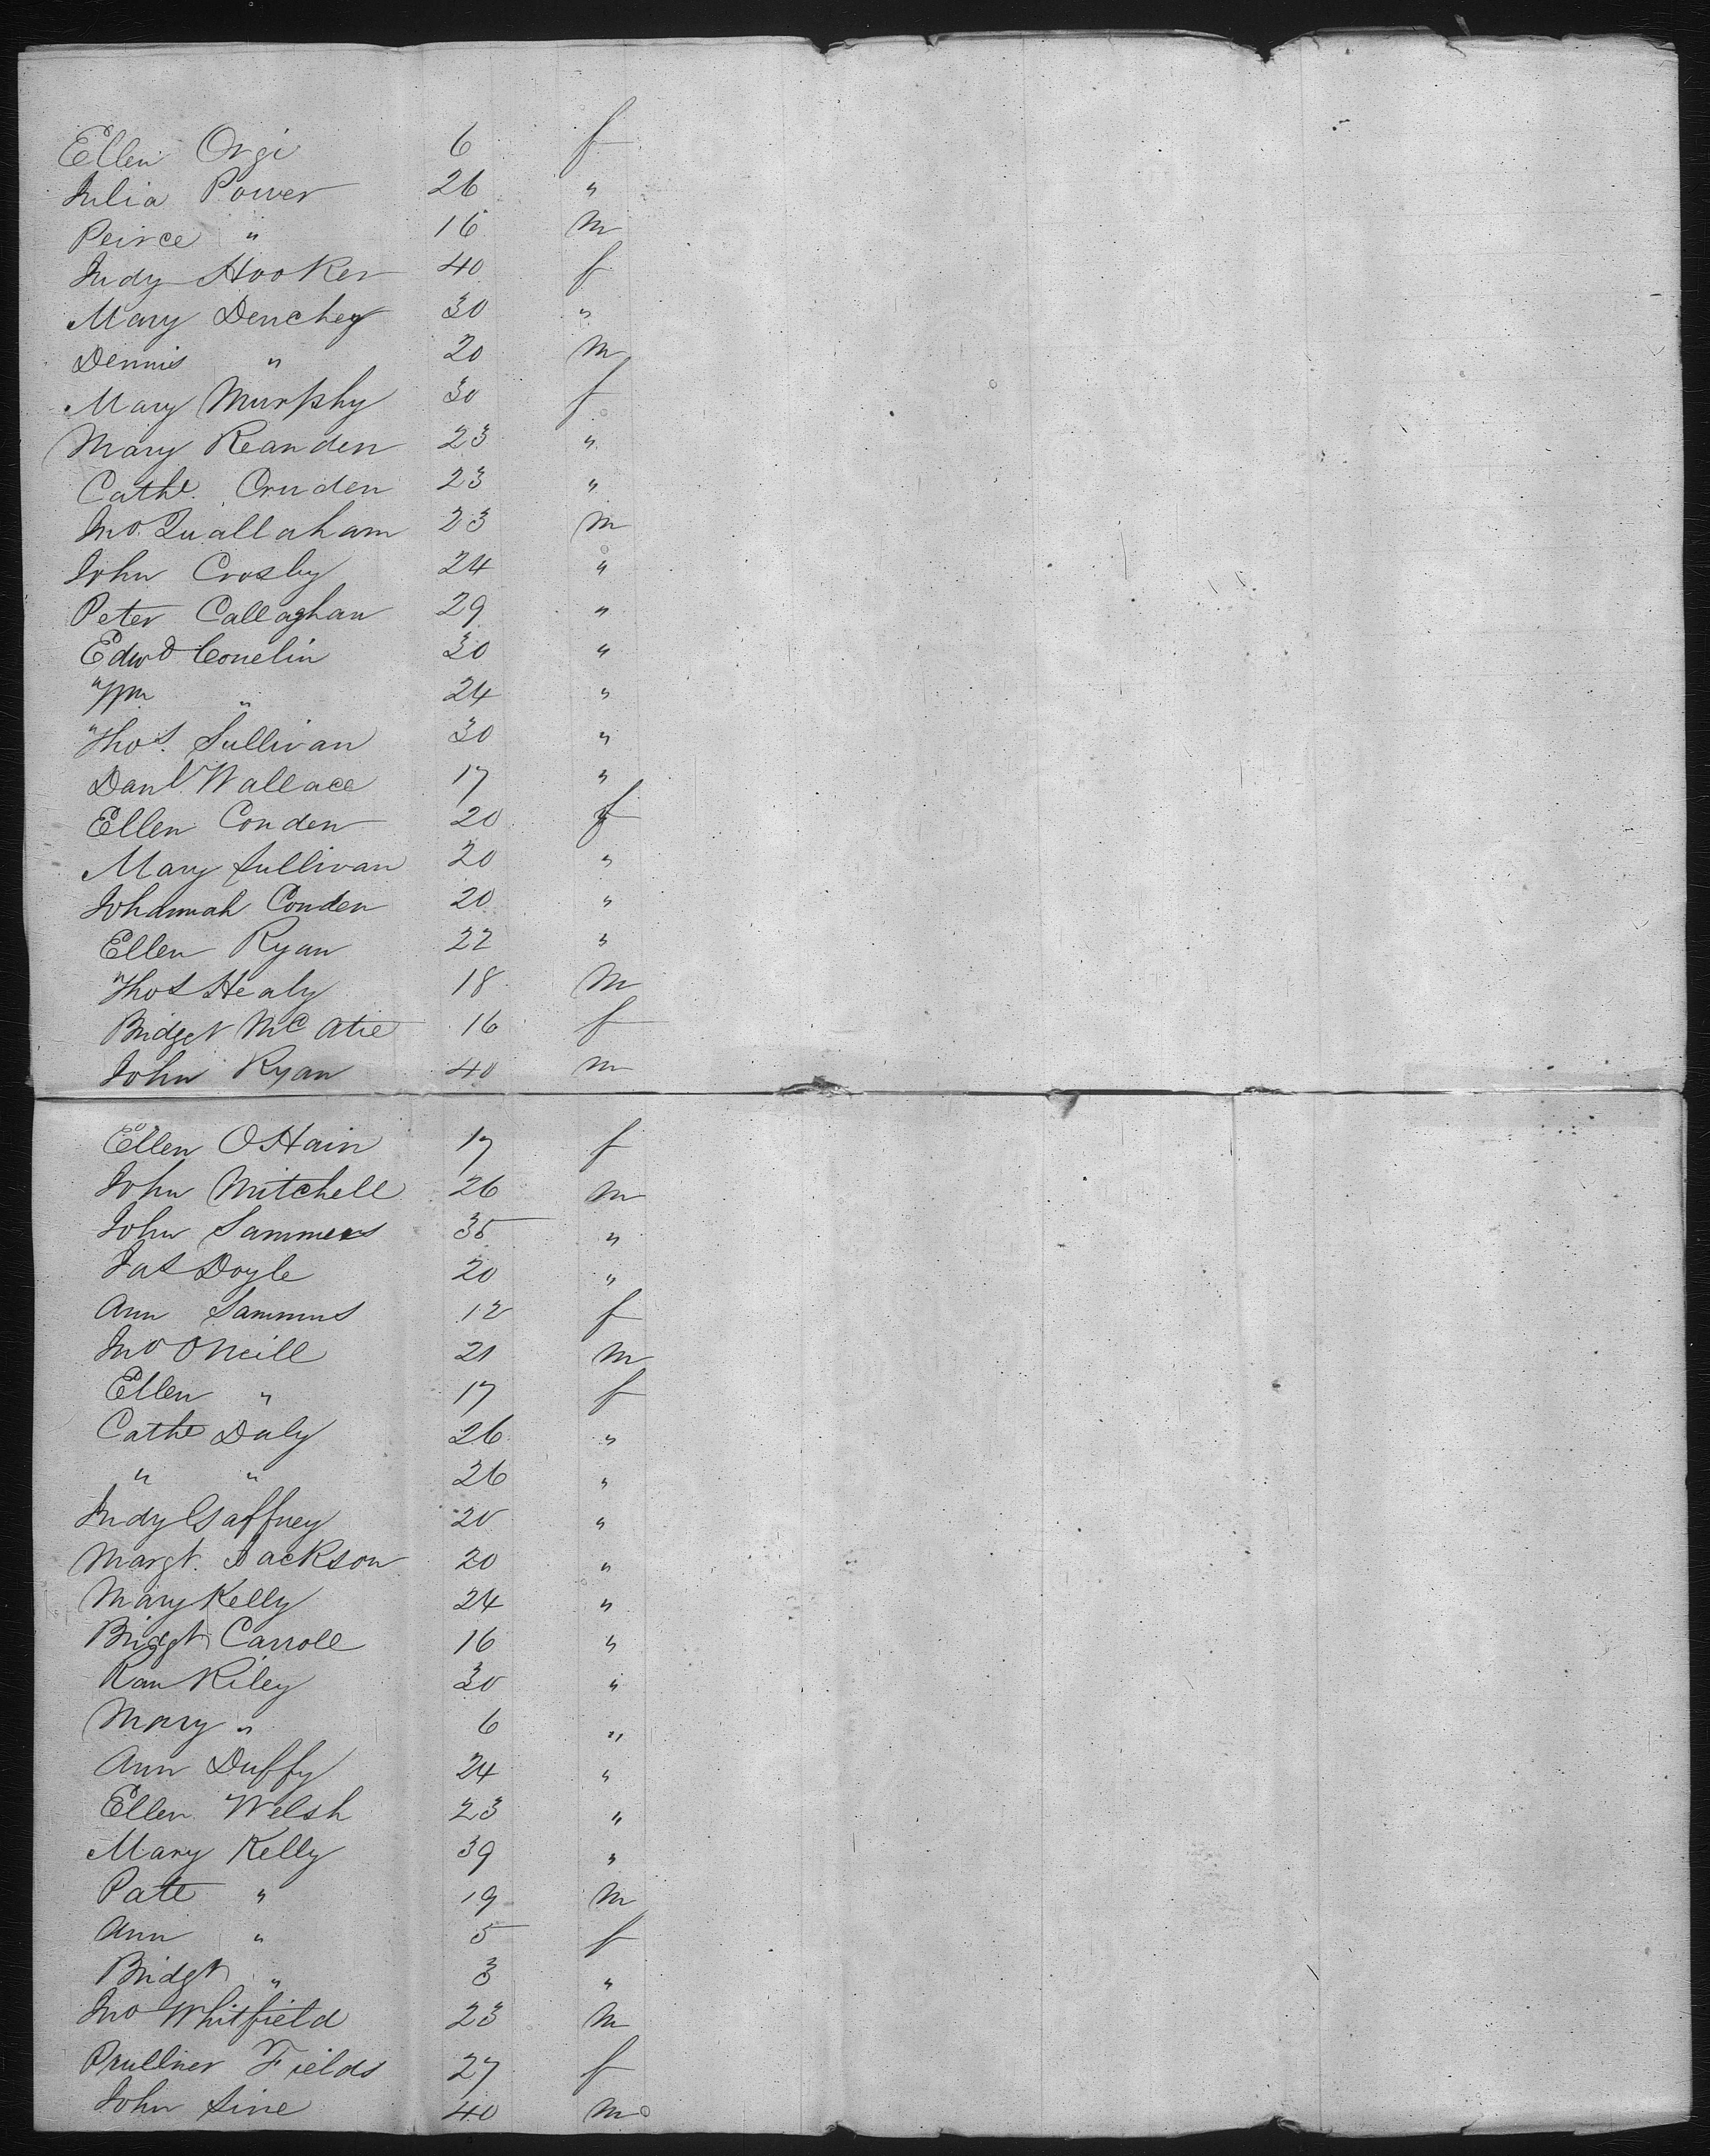 Ellen Orgi 6 f
Julia Power 26 "
Peirce " 16 m
Judy Hooker 40 f
Mary Denchey 30 "
Dennis " 20 m
Mary Murphy 30 f
Mary Reanden 23 "
Cathe. Cruden 23 "
Jno. Quallaham 23 m
John Crosby 24 "
Peter Callaghan 29 "
Edwd Conelin 30 "
Wm " 24 "
Thos. Sullivan 30 "
Danl. Wallace 17 "
Ellen Conden 20 f
Mary Sullivan 20 "
Johannah Conden 20 "
Ellen Ryan 22 "
Thos Healy 18 m
Bridget McAtie 16 f
John Ryan 40 m
Ellen OHain 17 f
John Mitchell 26 m
John Sammers 35 "
Jas Doyle 20 "
Ann Sammns 12 f
Jno ONeill 21 m
Ellen " 17 f
Cathe Daly 26 "
" " 26 "
Judy Gaffney 20 "
Margt. Jackson 20 "
Mary Kelly 24 "
Bridgt Carroll 16 "
Kan Riley 30 "
Mary " 6 "
Ann Duffy 24 "
Ellen Welsh 23 "
Mary Kelly 39 "
Pate " 19 m
Ann " 5 f
Bridgt " 3 "
Jno Whitfield 23 m
Fields 27 f
John Sine 40 m